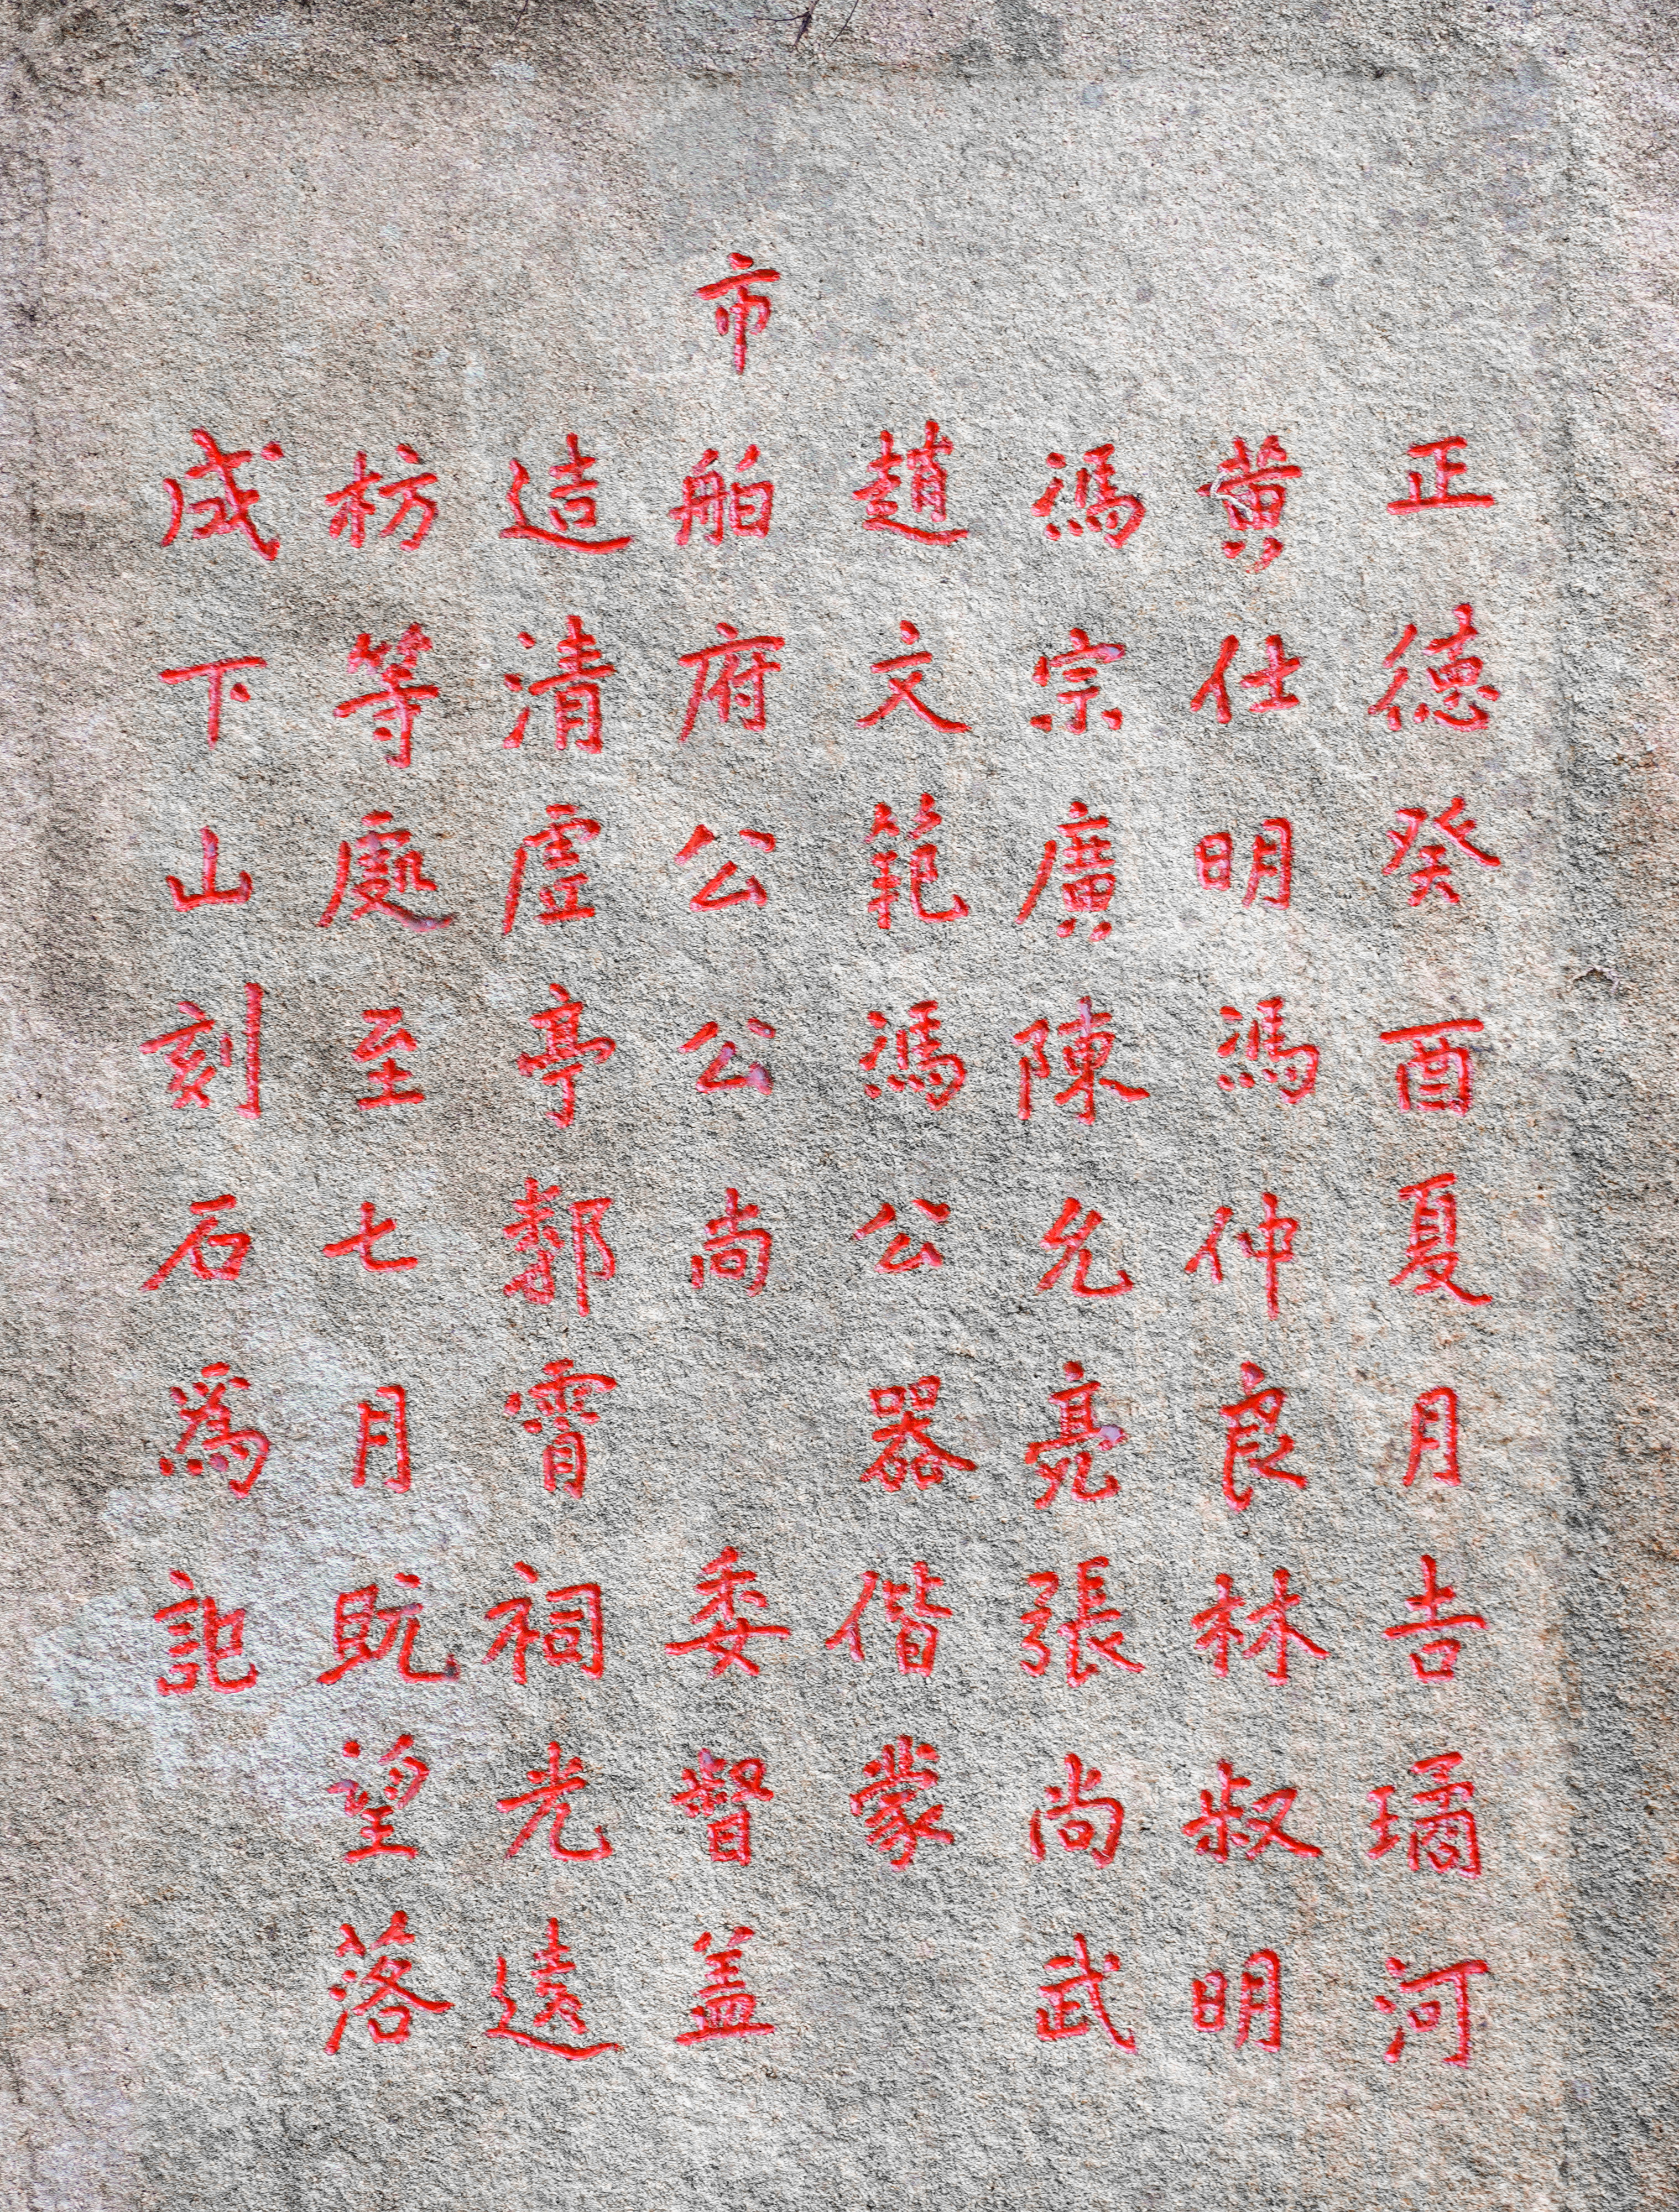 正德癸酉夏月吉璚河
黄仕明馮仲良林叔明
馮宗廣陳允亮張尚武
趙文範馮公器偕蒙
市舶府公公尚委督盖
造清虚亭鄴霄祠光遠
枋等處至七月既望落
成下山刻石爲記